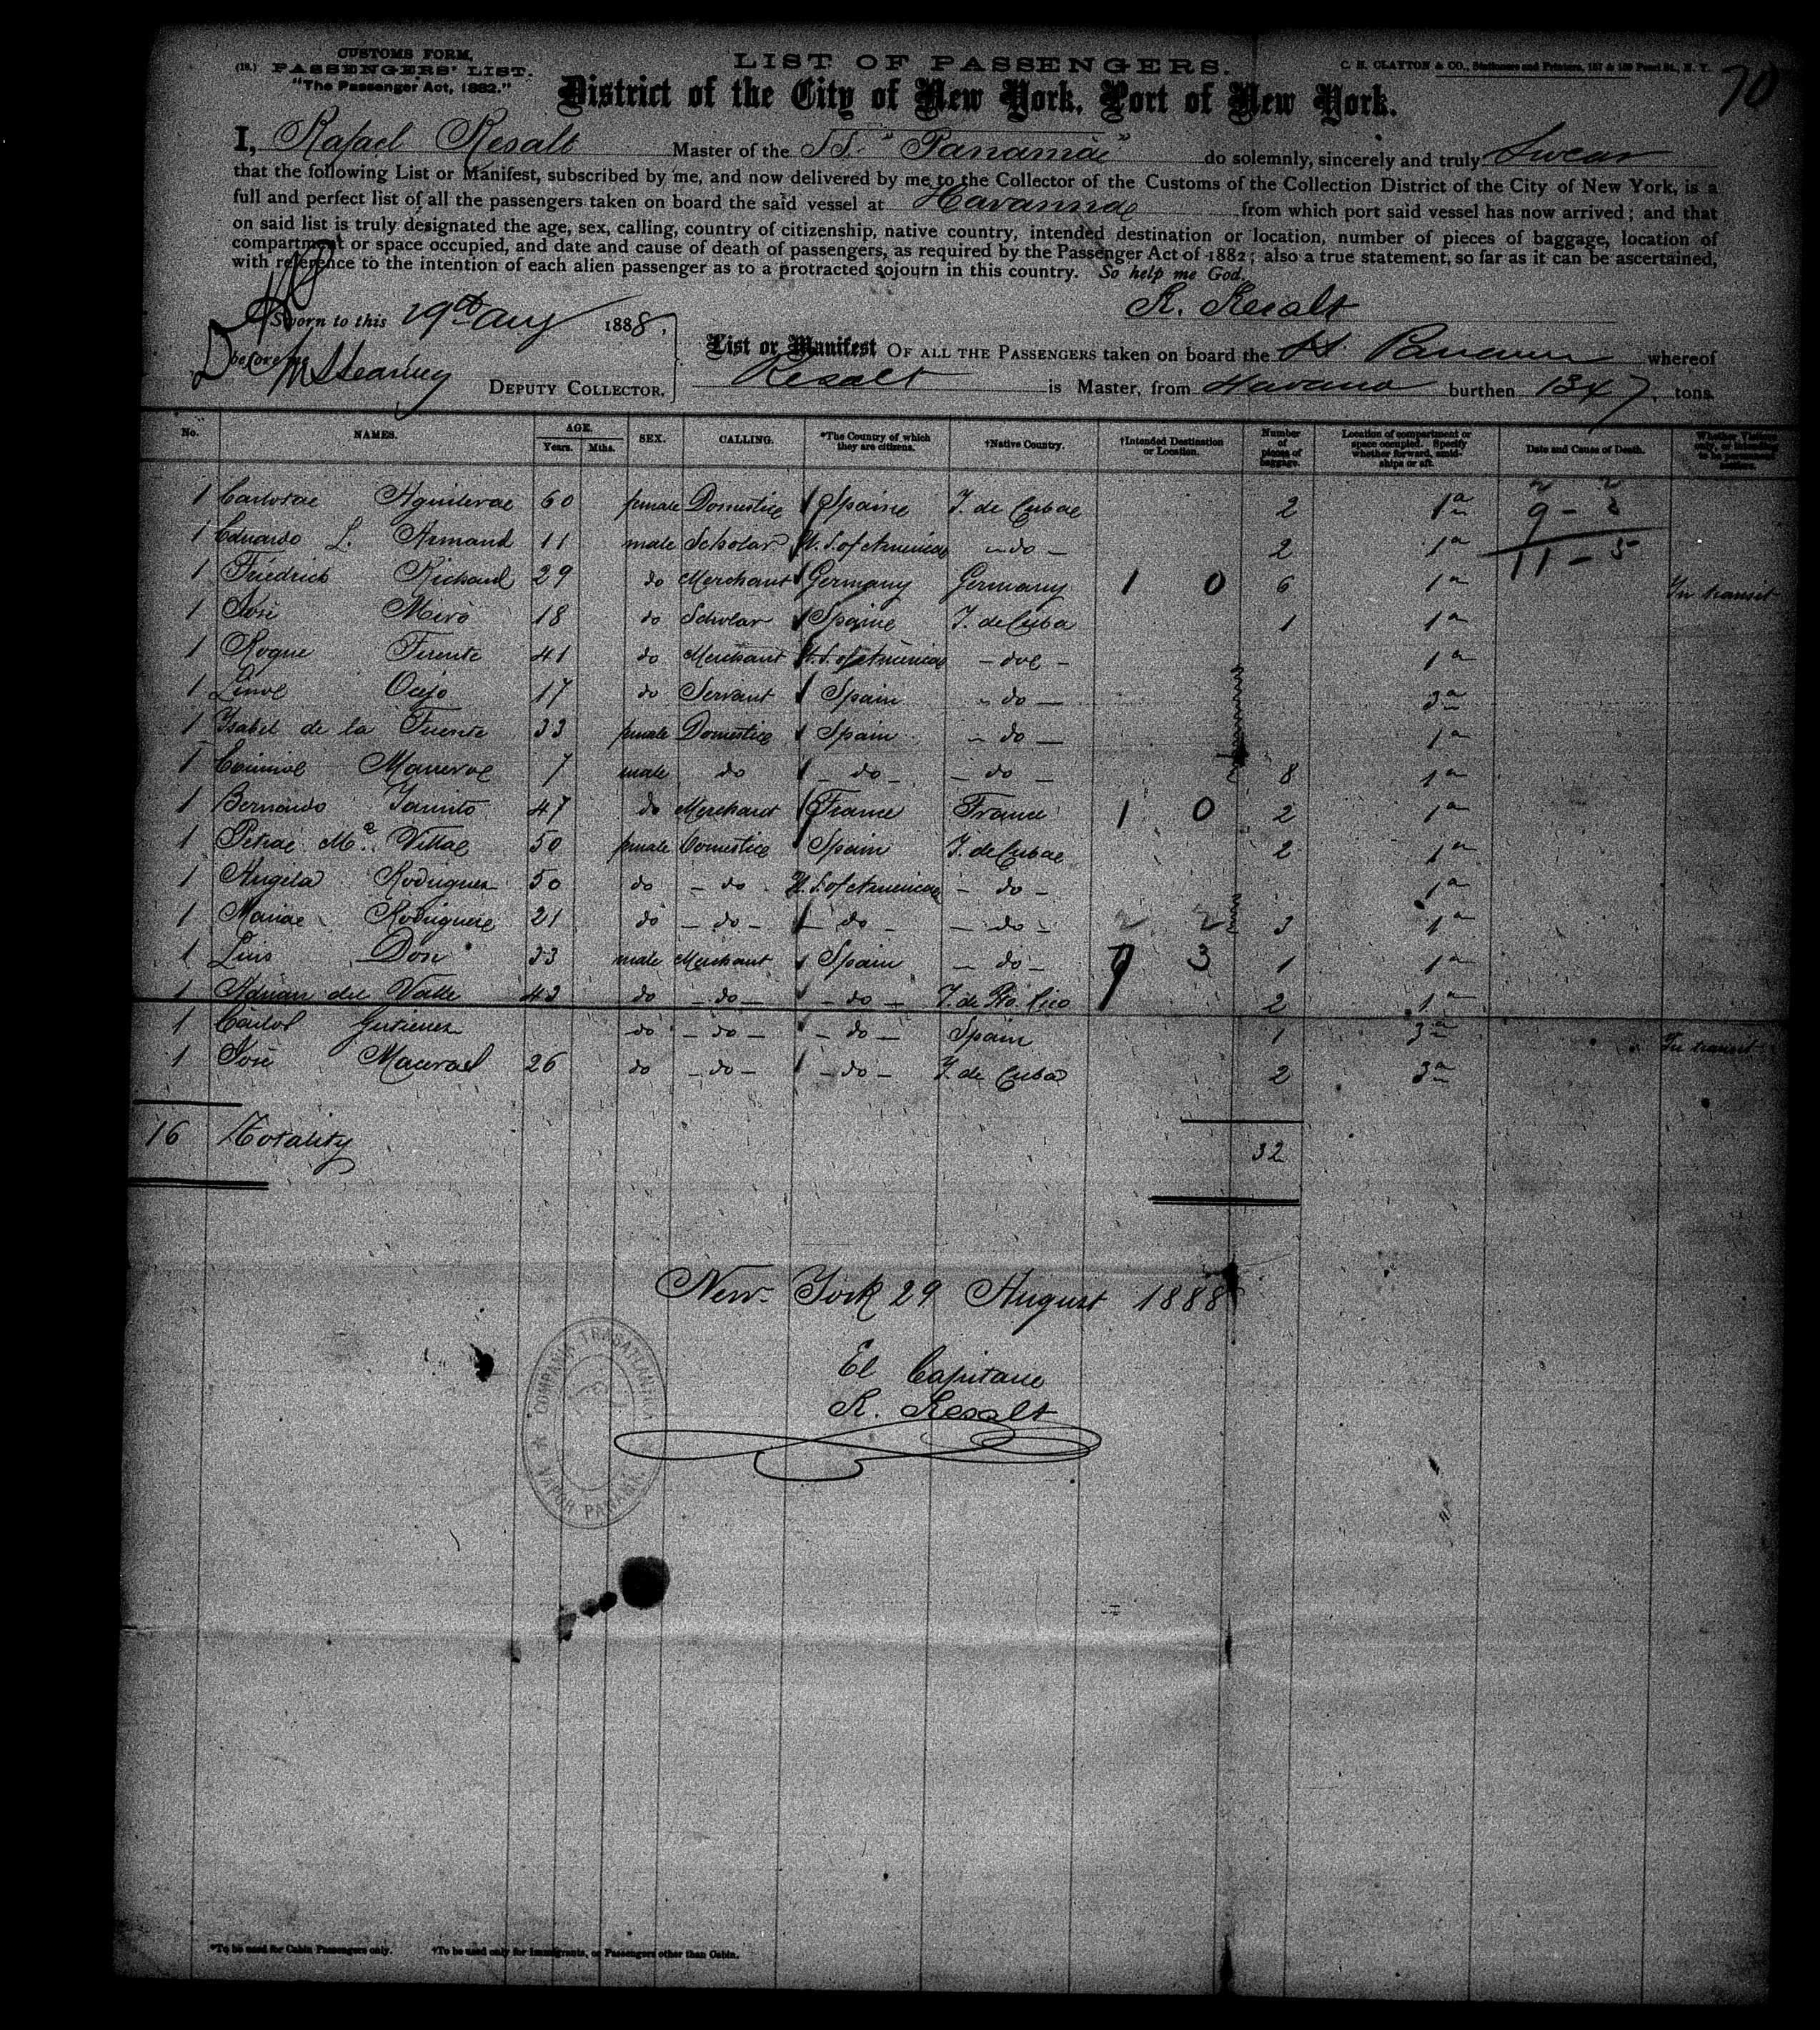 CUSTOMS FORM,
(18.) PASSENGERS' LIST.
"The Passenger Act, 1882."
LIST OF PASSENGERS.
C. H. CLAYTON & CO., Stationers and Printers, 157 & 159 Pearl St., N. Y.
70
District of the City of New York, Port of New York.
I, Rafael Resalt Master of the SS. "Panama" do solemnly, sincerely and truly Swear
that the following List or Manifest, subscribed by me, and now delivered by me to the Collector of the Customs of the Collection District of the City of New York, is a
full and perfect list of all the passengers taken on board the said vessel at Havanna from which port said vessel has now arrived; and that
on said list is truly designated the age, sex, calling, country of citizenship, native country, intended destination or location, number of pieces of baggage, location of
compartment or space occupied, and date and cause of death of passengers, as required by the Passenger Act of 1882; also a true statement, so far as it can be ascertained,
with reference to the intention of each alien passenger as to a protracted sojourn in this country. So help me God.
R. Resalt
Sworn to this 29th Aug 1888,
before me
DEPUTY COLLECTOR.
List or Manifest OF ALL THE PASSENGERS taken on board the SS. Panama whereof
Resalt is Master, from Havana burthen 1347, tons.
No. NAMES. AGE. Years. Mths. SEX. CALLING. *The Country of which they are citizens. †Native Country. †Intended Destination or Location. Number of pieces of baggage. Location of compartment or space occupied. Specify whether forward, amidships or aft. Date and Cause of Death.
1 Carlotae Aguilerae 60 female Domestice Spaine I. de Cubae 2 1a 9 - 3
1 Eduardo L. Armand 11 male Scholar U. S. of America - do - 2 1a 11 - 5
1 Friedrich Richard 29 do Merchant Germany Germany 1 0 6 1a In transit
1 José Miró 18 do Scholar Spaine I. de Cuba 1 1a
1 Roque Fuente 41 do Merchant U. S. of America - do - 1a
1 Oejo 17 do Servant Spain - do - 3a
1 Isabel de la Fuente 33 female Domestice Spain - do - 1a
1 7 male do - do - - do - 8 1a
1 Bernardo 47 do Merchant France France 1 0 2 1a
1 Petrae Ma. Villae 50 female Domestice Spain I. de Cubae 2 1a
1 Angela Rodriguez 50 do - do - U. S. of Americae - do - 1a
1 Mariae Rodriguez 21 do - do - - do - - do - 2 2 3 1a
1 Luis Dosi 33 male Merchant Spain - do - 9 3 1 1a
1 Adrian del Valle 43 do - do - - do - I. de Pto. Rico 2 1a
1 Carlos Gutierrez do - do - - do - Spain 1 3a In transit
1 José 26 do - do - - do - I. de Cuba 2 3a
16 Totality 32
New-York 29 August 1888
El Capitane
R. Resalt
COMPAÑIA TRASATLANTICA
VAPOR PANAMÁ
*To be used for Cabin Passengers only. †To be used only for Immigrants, or Passengers other than Cabin.